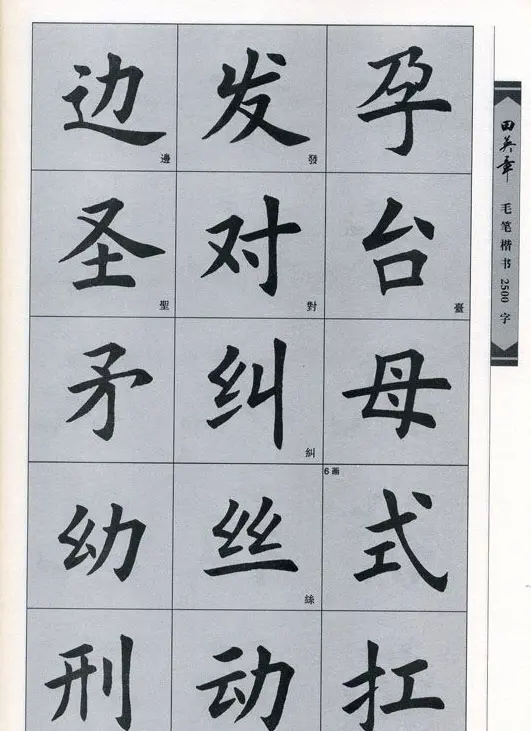 边 邊 发 發 孕
圣 聖 对 對 台 臺
矛 纠 糾 母
幼 丝 絲 6画 式
刑 动 扛
田英章 毛笔楷书2500字